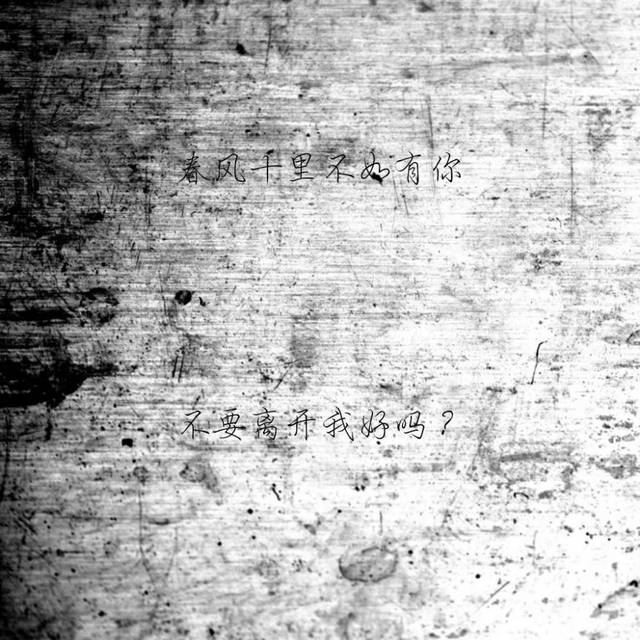 春风千里不如有你
不要离开我好吗？